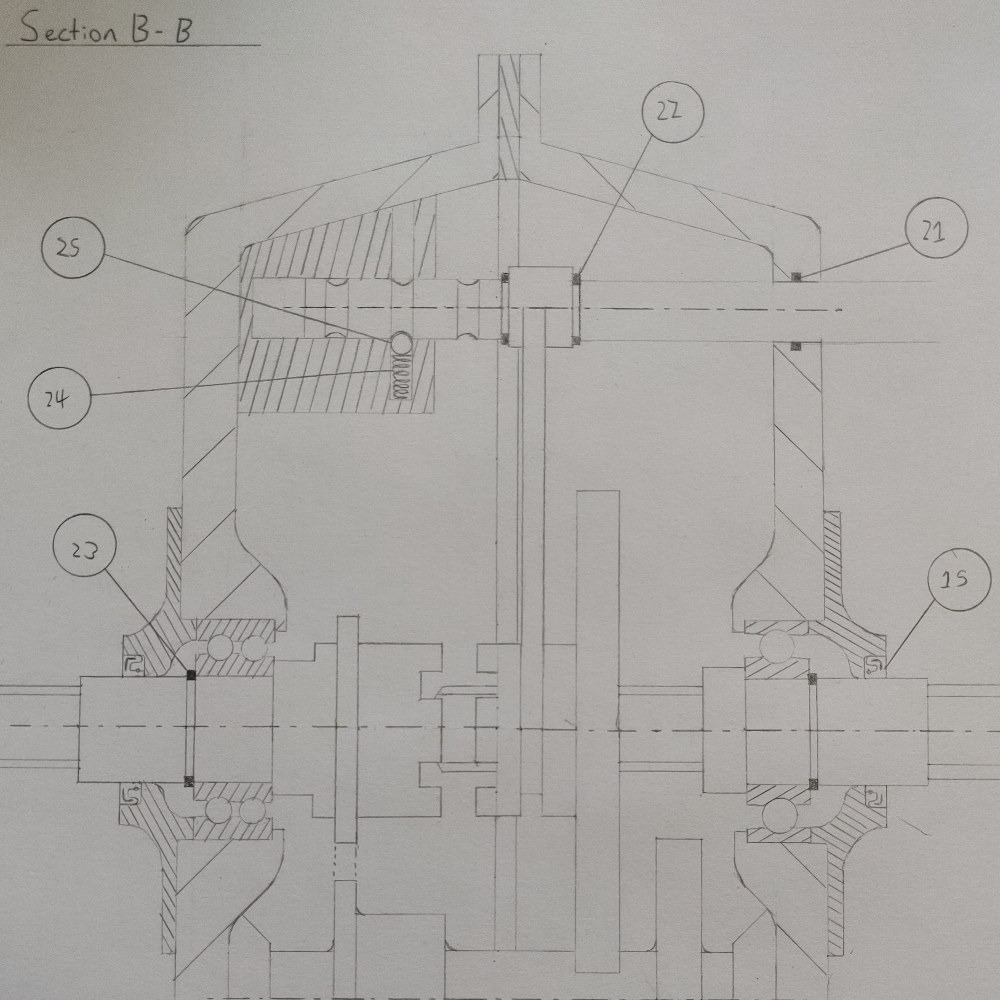 Section B-B
22
21
25
24
23
15